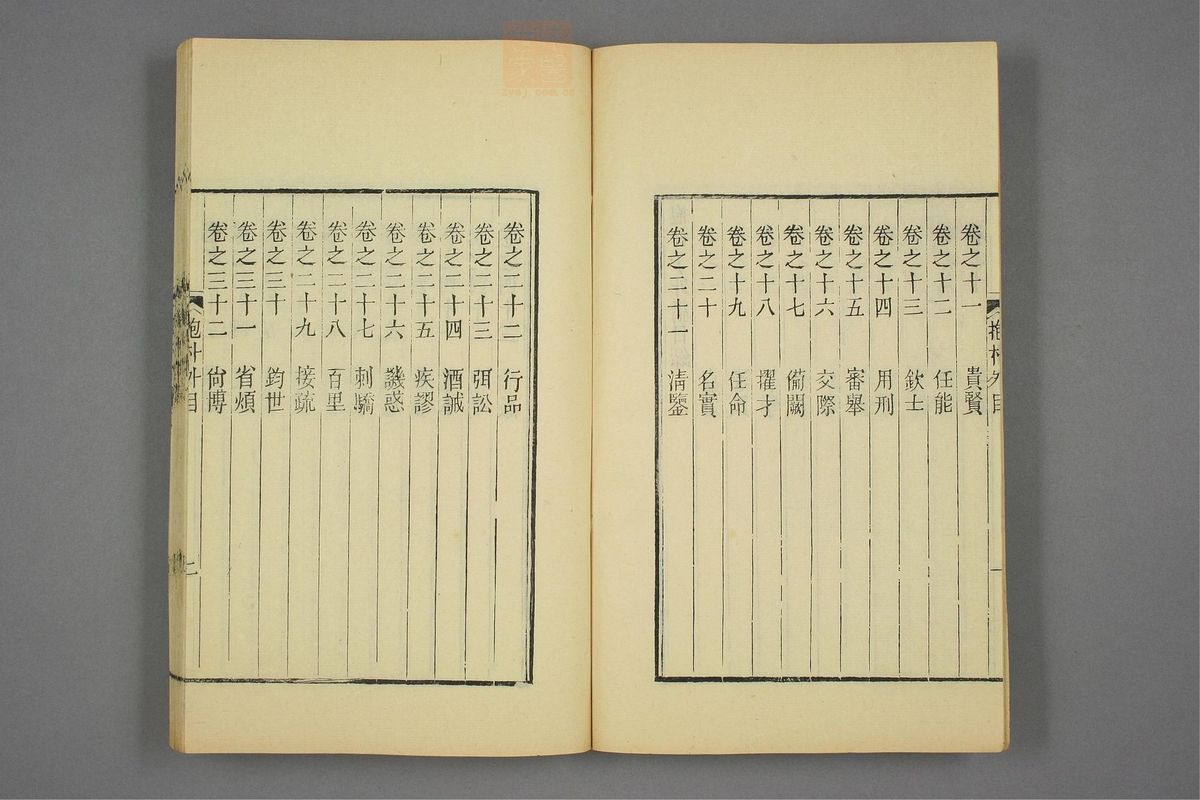 抱朴外目
一
卷之十一 貴賢
卷之十二 任能
卷之十三 欽士
卷之十四 用刑
卷之十五 審舉
卷之十六 交際
卷之十七 僃闕
卷之十八 擢才
卷之十九 任命
卷之二十 名實
卷之二十一 淸鑒
卷之二十二 行品
卷之二十三 弭訟
卷之二十四 酒誡
卷之二十五 疾謬
卷之二十六 譏惑
卷之二十七 刺驕
卷之二十八 百里
卷之二十九 接疏
卷之三十 鈞世
卷之三十一 省煩
卷之三十二 尙博
抱朴外目
二